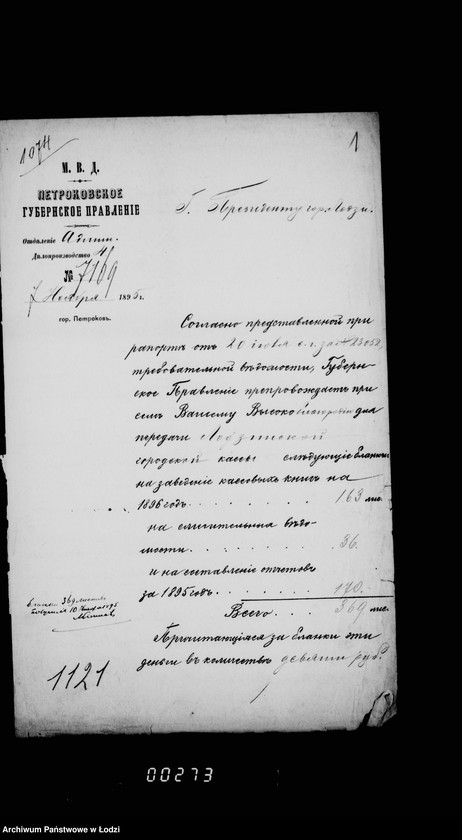 1074
1
М. В. Д.
ПЕТРОКОВСКОЕ
ГУБЕРНСКОЕ ПРАВЛЕНІЕ
Отдѣленіе Админ.
Дѣлопроизводство 4
№ 7169
7 Ноября 1895 г.
гор. Петроковъ.
Г. Президенту гор. Лодзи.
Согласно представленной при
рапортѣ отъ 20 Іюля с. г. за №
требовательной вѣдомости, Губерн-
ское Правленіе препровождаетъ при
семъ Вашему Высокоблагородію для
передачи Лодзинской
городской кассы слѣдующіе бланки
на заведеніе кассовыхъ книгъ на
1896 годъ . . . . . . . . 163 лис.
на сличительныя вѣдо-
мости . . . . . . . . 36.
и на составленіе отчетовъ
за 1895 годъ . . . . . . . 170.
Всего . . . 369 лис.
Причитающіяся за бланки эти
деньги въ количествѣ девяти руб.
бланки 369 листовъ
получилъ 10 Ноября 1895
1121
00273
Archiwum Państwowe w Łodzi